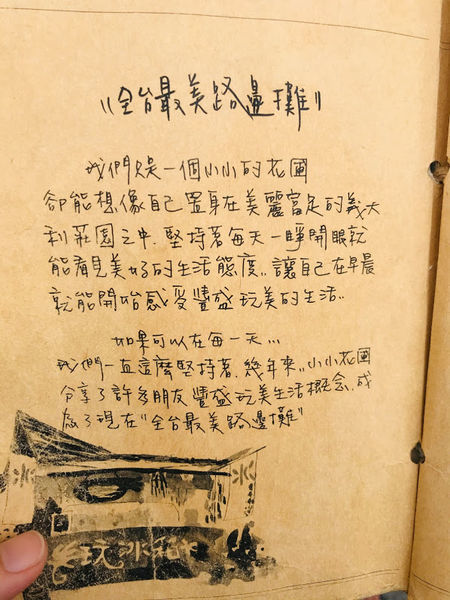 "全台最美路邊攤"
我們只是一個小小的花園
卻能想像自己置身在美麗富足的義大
利莊園之中.堅持著每天一睜開眼就
能看見美好的生活態度..讓自己在早晨
就能開始感受豐盛玩美的生活..
如果可以在每一天...
我們一直這麼堅持著.幾年來..小小花園
分享了許多朋友豐盛玩美生活概念.成
為了現在"全台最美路邊攤"
冰
冰
玩冰